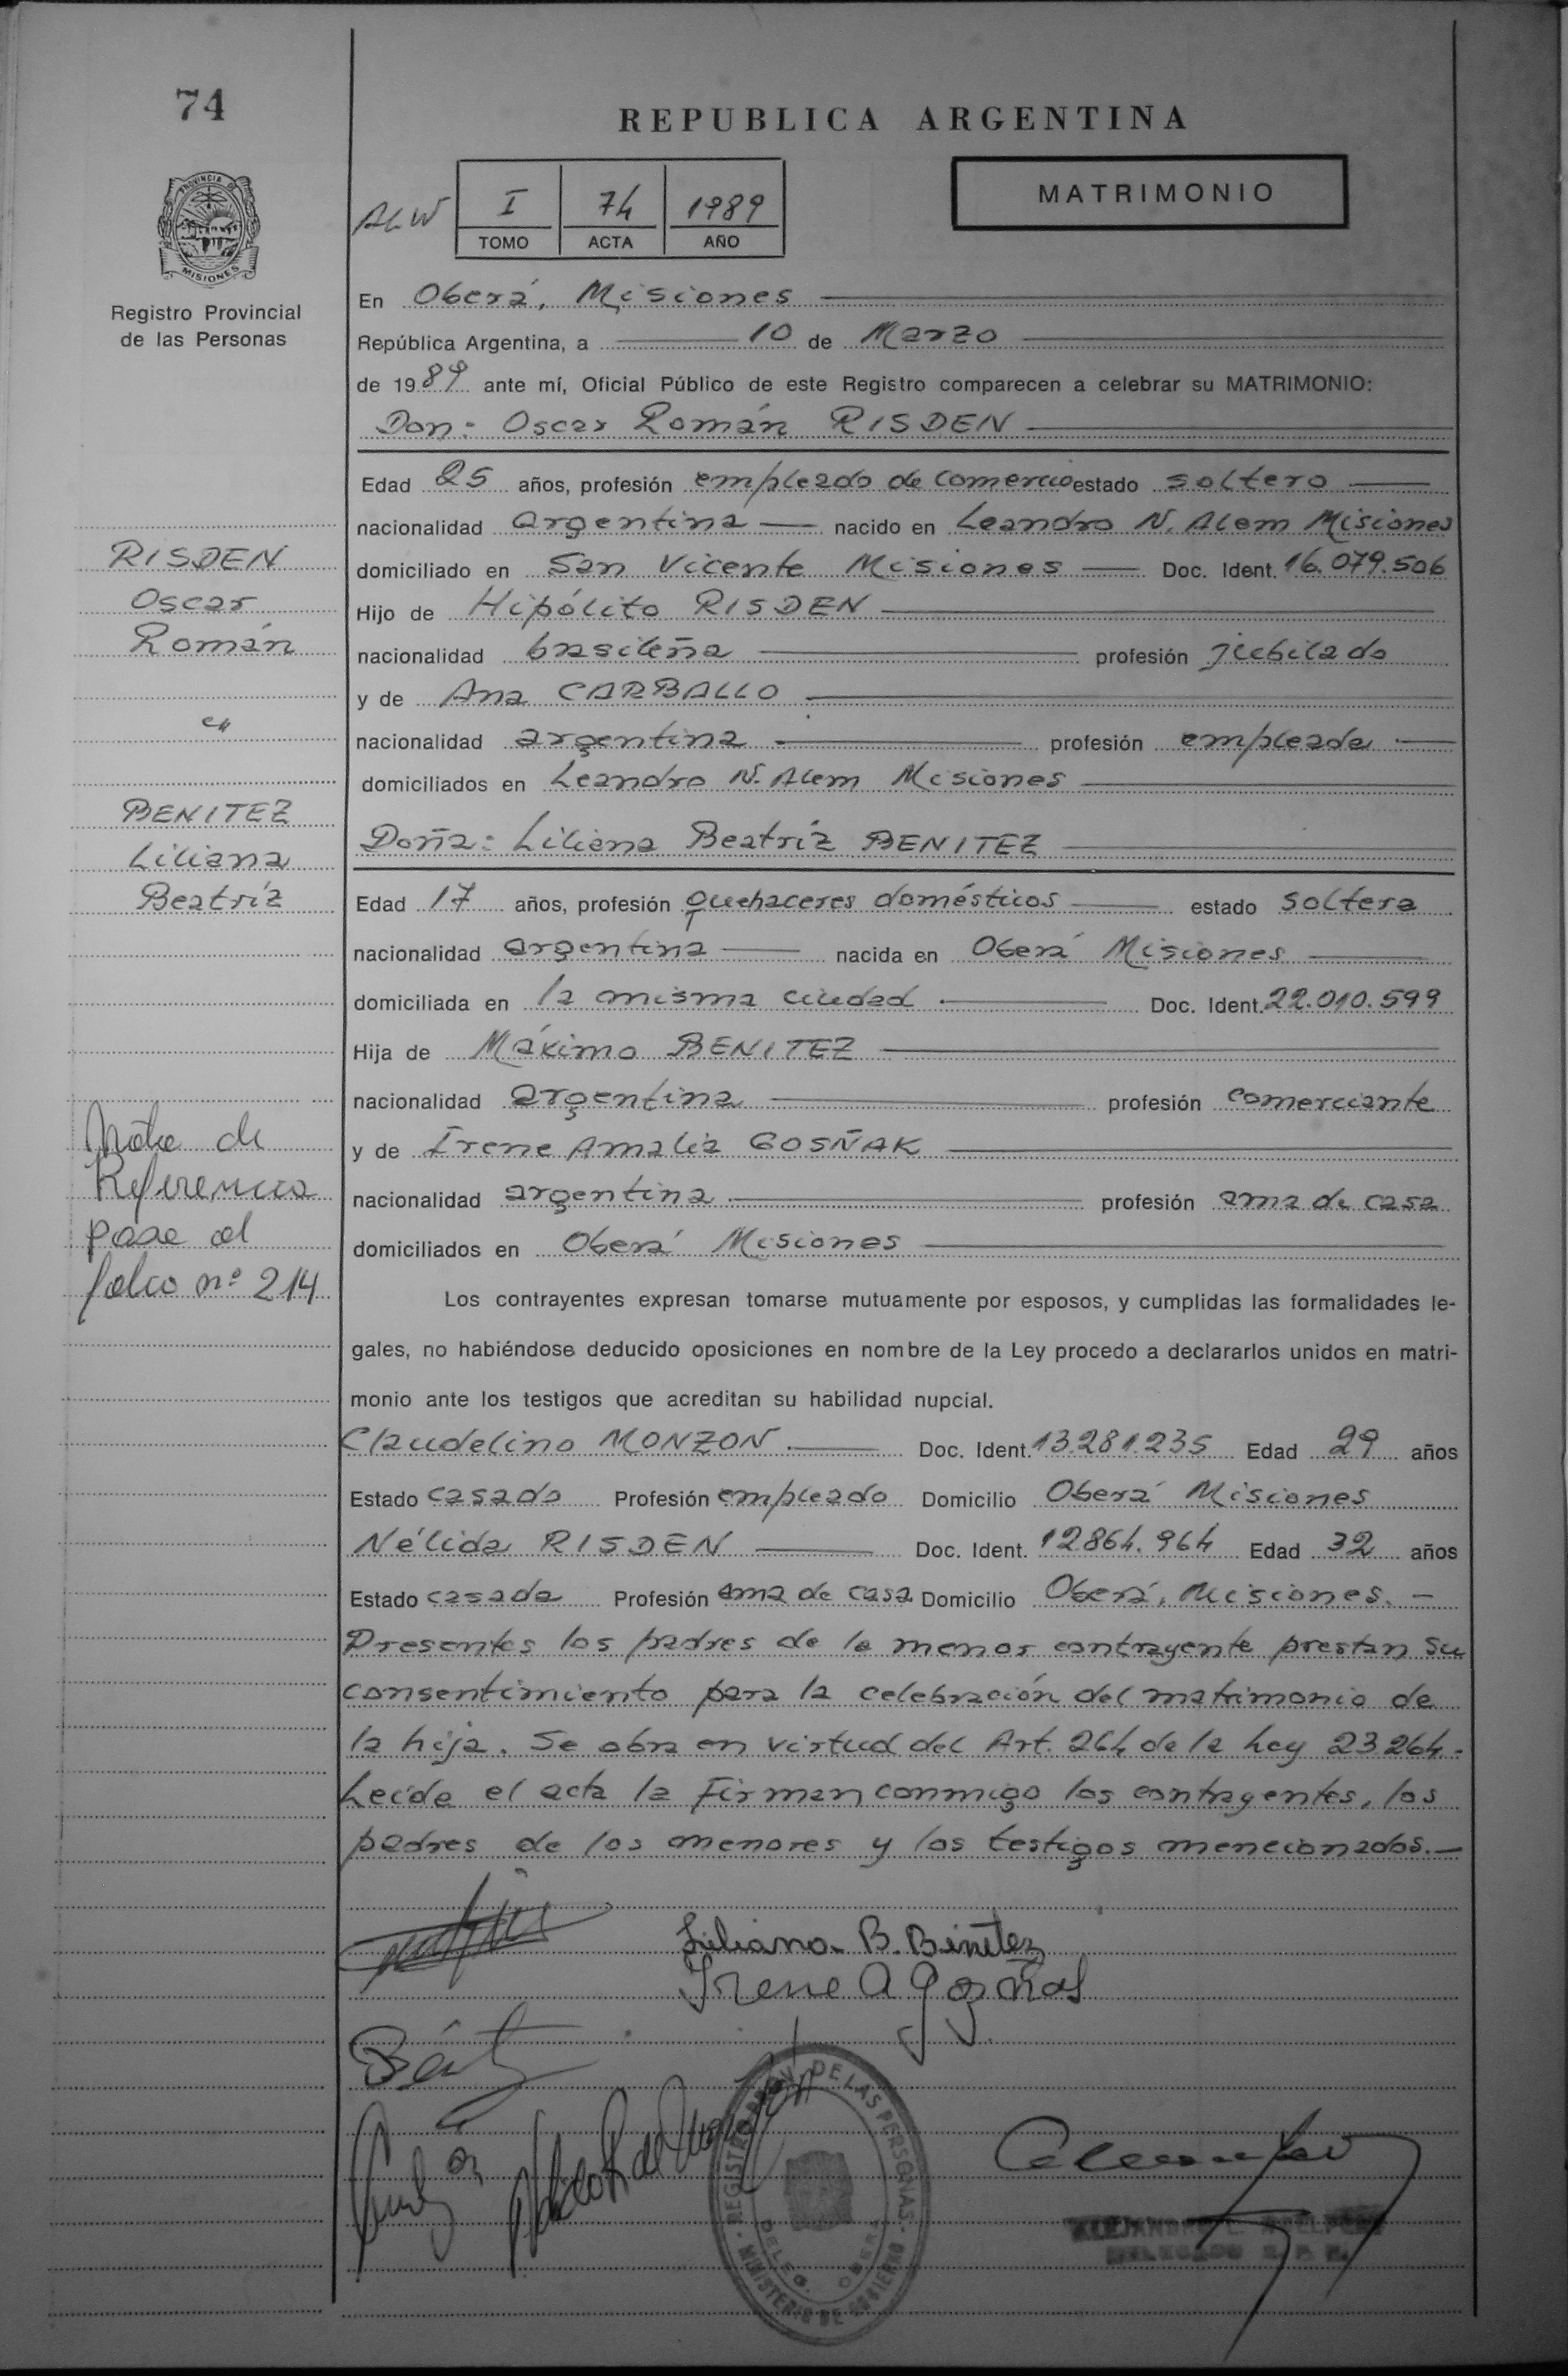 74
REPUBLICA ARGENTINA
PROVINCIA DE
MISIONES
Registro Provincial
de las Personas
ALW
I 74 1989
TOMO ACTA AÑO
MATRIMONIO
En Oberá, Misiones
República Argentina, a 10 de Marzo
de 1989 ante mí, Oficial Público de este Registro comparecen a celebrar su MATRIMONIO:
Don: Oscar Román RISDEN
Edad 25 años, profesión empleado de comercio estado soltero
nacionalidad argentina nacido en Leandro N. Alem Misiones
domiciliado en San Vicente Misiones Doc. Ident. 16.079.506
Hijo de Hipólito RISDEN
nacionalidad brasileña profesión jubilado
y de Ana CARBALLO
nacionalidad argentina profesión empleada
domiciliados en Leandro N. Alem Misiones
Doña: Liliana Beatríz BENITEZ
Edad 17 años, profesión quehaceres domésticos estado soltera
nacionalidad argentina nacida en Oberá Misiones
domiciliada en la misma ciudad Doc. Ident. 22.010.599
Hija de Máximo BENITEZ
nacionalidad argentina profesión comerciante
y de Irene Amalia GOSÑAK
nacionalidad argentina profesión ama de casa
domiciliados en Oberá Misiones
Los contrayentes expresan tomarse mutuamente por esposos, y cumplidas las formalidades le-
gales, no habiéndose deducido oposiciones en nombre de la Ley procedo a declararlos unidos en matri-
monio ante los testigos que acreditan su habilidad nupcial.
Claudelino MONZON Doc. Ident. 13.281.235 Edad 29 años
Estado casado Profesión empleado Domicilio Oberá Misiones
Nélida RISDEN Doc. Ident. 12864.964 Edad 32 años
Estado casada Profesión ama de casa Domicilio Oberá, Misiones.-
Presentes los padres de la menor contrayente prestan su
consentimiento para la celebración del matrimonio de
la hija. Se obra en virtud del Art. 264 de la Ley 23.264.-
Leída el acta la Firman conmigo los contrayentes, los
padres de los menores y los testigos mencionados.-
RISDEN
Oscar
Román
c/
BENITEZ
Liliana
Beatríz
Nota de
Referencia
pase al
folio nº 214
Liliana B. Benítez
Irene A Gosñak
REGISTRO PROV. DE LAS PERSONAS
DELEG. OBERA
MINISTERIO DE GOBIERNO